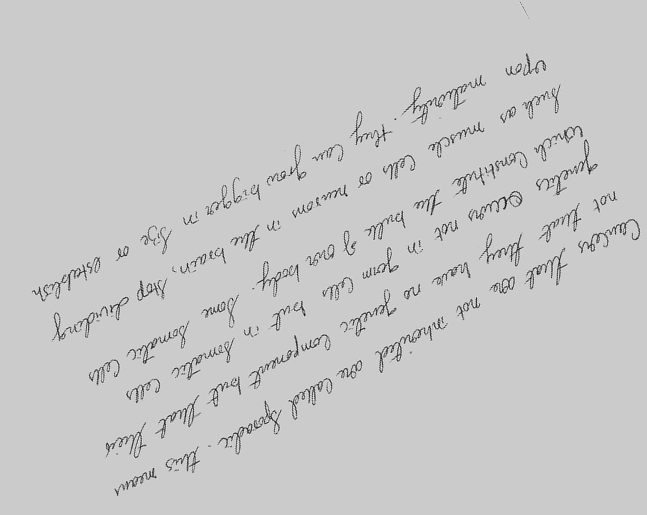 Cancers that are not inherited are called sporadic. this means
not that they have no genetic component but that their
genetics occurs not in germ cells but in somatic cells
which constitute the bulk of our body. Some somatic cells
such as muscle cells or neurons in the brain, stop dividing
upon maturity. they can grow bigger in size or establish